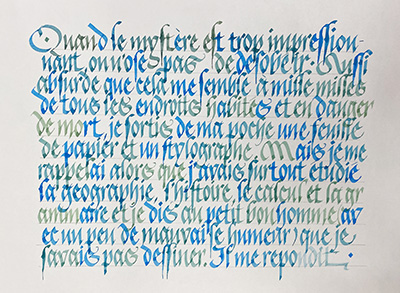 Quand le mystère est trop impression-
nant, on n'ose pas desobeir. Aussi
absurde que cela me semble à mille milles
de tous les endroits habites et en danger
de mort, je sortis de ma poche une feuille
de papier et un stylographe. Mais je me
rappelai alors que j'avais surtout etudie
la geographie, l'histoire, le calcul et la gr
ammaire et je dis au petit bonhomme, av
ec un peu de mauvaise humeur) que je
savais pas dessiner. Il me repondit: